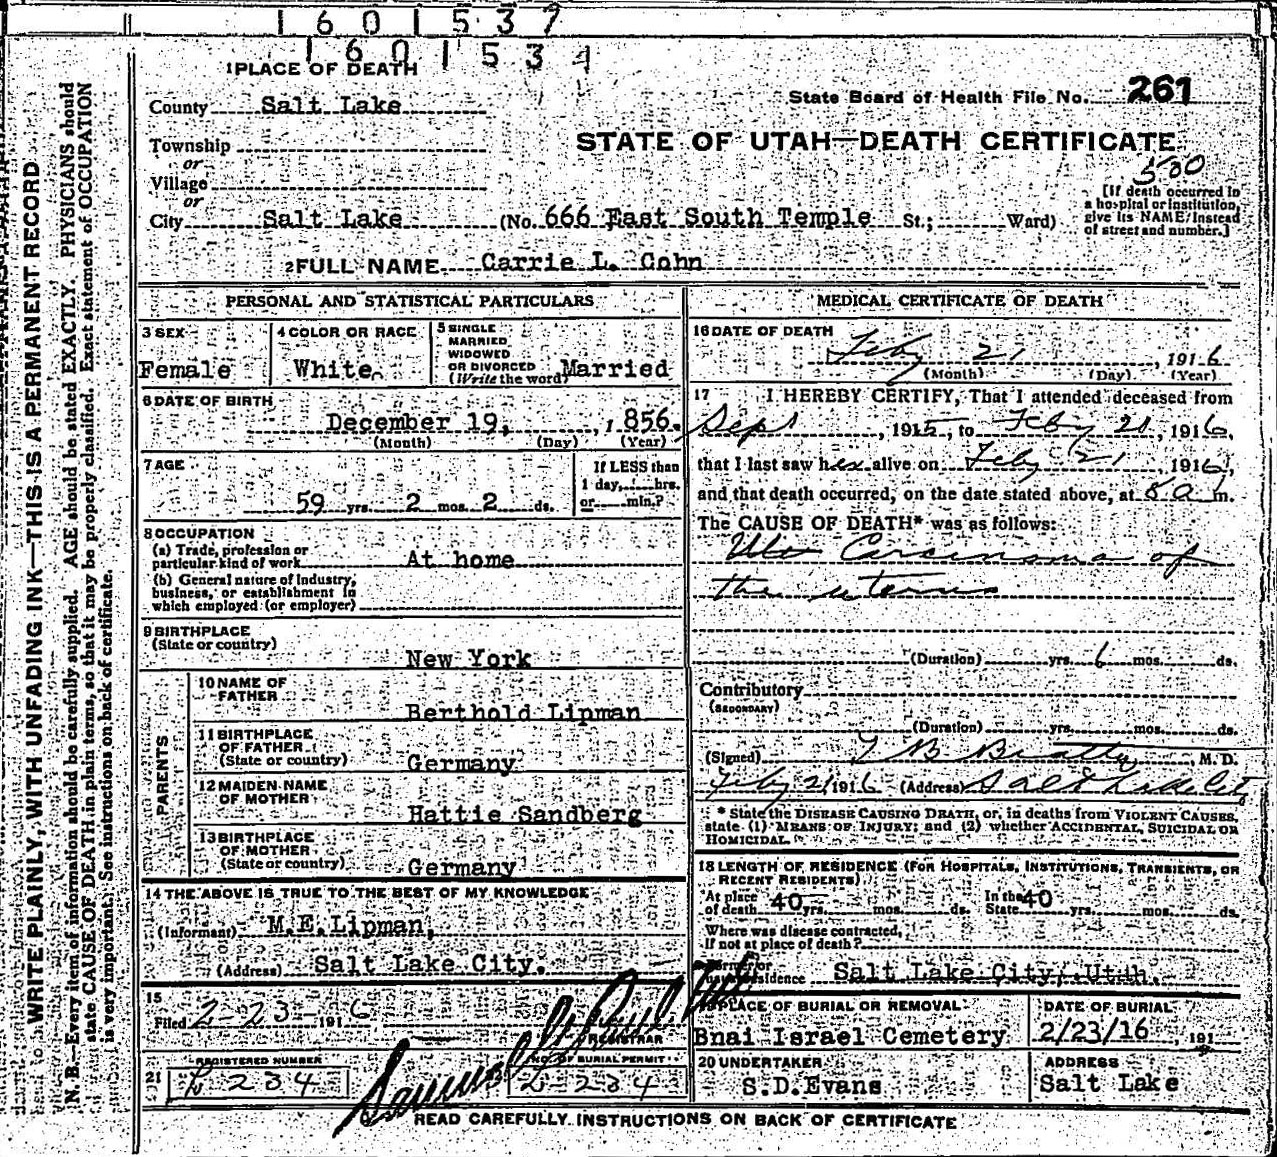 1601537
1601534
1 PLACE OF DEATH
County Salt Lake
State Board of Health File No. 261
Township
or
STATE OF UTAH—DEATH CERTIFICATE
580
Village
or
City Salt Lake (No. 666 East South Temple St.; Ward)
[If death occurred in
a hospital or institution,
give its NAME instead
of street and number.]
2 FULL NAME Carrie L. Cohn
PERSONAL AND STATISTICAL PARTICULARS
3 SEX
Female
4 COLOR OR RACE
White
5 SINGLE
MARRIED
WIDOWED
OR DIVORCED
(Write the word) Married
6 DATE OF BIRTH
December 19, 1856.
(Month) (Day) (Year)
7 AGE
59 yrs. 2 mos. 2 ds.
If LESS than
1 day, hrs.
or min.?
8 OCCUPATION
(a) Trade, profession or
particular kind of work At home
(b) General nature of Industry,
business, or establishment in
which employed (or employer)
9 BIRTHPLACE
(State or country)
New York
PARENTS
10 NAME OF
FATHER
Berthold Lipman
11 BIRTHPLACE
OF FATHER
(State or country) Germany
12 MAIDEN NAME
OF MOTHER
Hattie Sandberg
13 BIRTHPLACE
OF MOTHER
(State or country) Germany
14 THE ABOVE IS TRUE TO THE BEST OF MY KNOWLEDGE
(Informant) M.E.Lipman,
(Address) Salt Lake City.
15
Filed 2-23- 1916
REGISTRAR
21
REGISTERED NUMBER
234
NO. OF BURIAL PERMIT
2-234
MEDICAL CERTIFICATE OF DEATH
16 DATE OF DEATH
Feby 21, 1916
(Month) (Day) (Year)
17 I HEREBY CERTIFY, That I attended deceased from
Sept, 1915, to Feby 21, 1916,
that I last saw her alive on Feby 21, 1916,
and that death occurred, on the date stated above, at 8 a m.
The CAUSE OF DEATH* was as follows:
Carcinoma of
the uterus
(Duration) yrs. 6 mos. ds.
Contributory
(SECONDARY)
(Duration) yrs. mos. ds.
(Signed) T B Beatty, M. D.
Feby 21 1916 (Address) Salt Lake City
* State the DISEASE CAUSING DEATH, or, in deaths from VIOLENT CAUSES,
state (1) MEANS OF INJURY; and (2) whether ACCIDENTAL, SUICIDAL OR
HOMICIDAL.
18 LENGTH OF RESIDENCE (FOR HOSPITALS, INSTITUTIONS, TRANSIENTS, OR
RECENT RESIDENTS)
At place
of death 40 yrs. mos. ds.
In the
State 40 yrs. mos. ds.
Where was disease contracted,
If not at place of death?
Former or
usual residence Salt Lake City, Utah.
19 PLACE OF BURIAL OR REMOVAL
Bnai Israel Cemetery
DATE OF BURIAL
2/23/16, 191
20 UNDERTAKER
S.D.Evans
ADDRESS
Salt Lake
READ CAREFULLY INSTRUCTIONS ON BACK OF CERTIFICATE
WRITE PLAINLY, WITH UNFADING INK—THIS IS A PERMANENT RECORD
N. B.—Every item of information should be carefully supplied. AGE should be stated EXACTLY. PHYSICIANS should
state CAUSE OF DEATH in plain terms, so that it may be properly classified. Exact statement of OCCUPATION
is very important. See instructions on back of certificate.